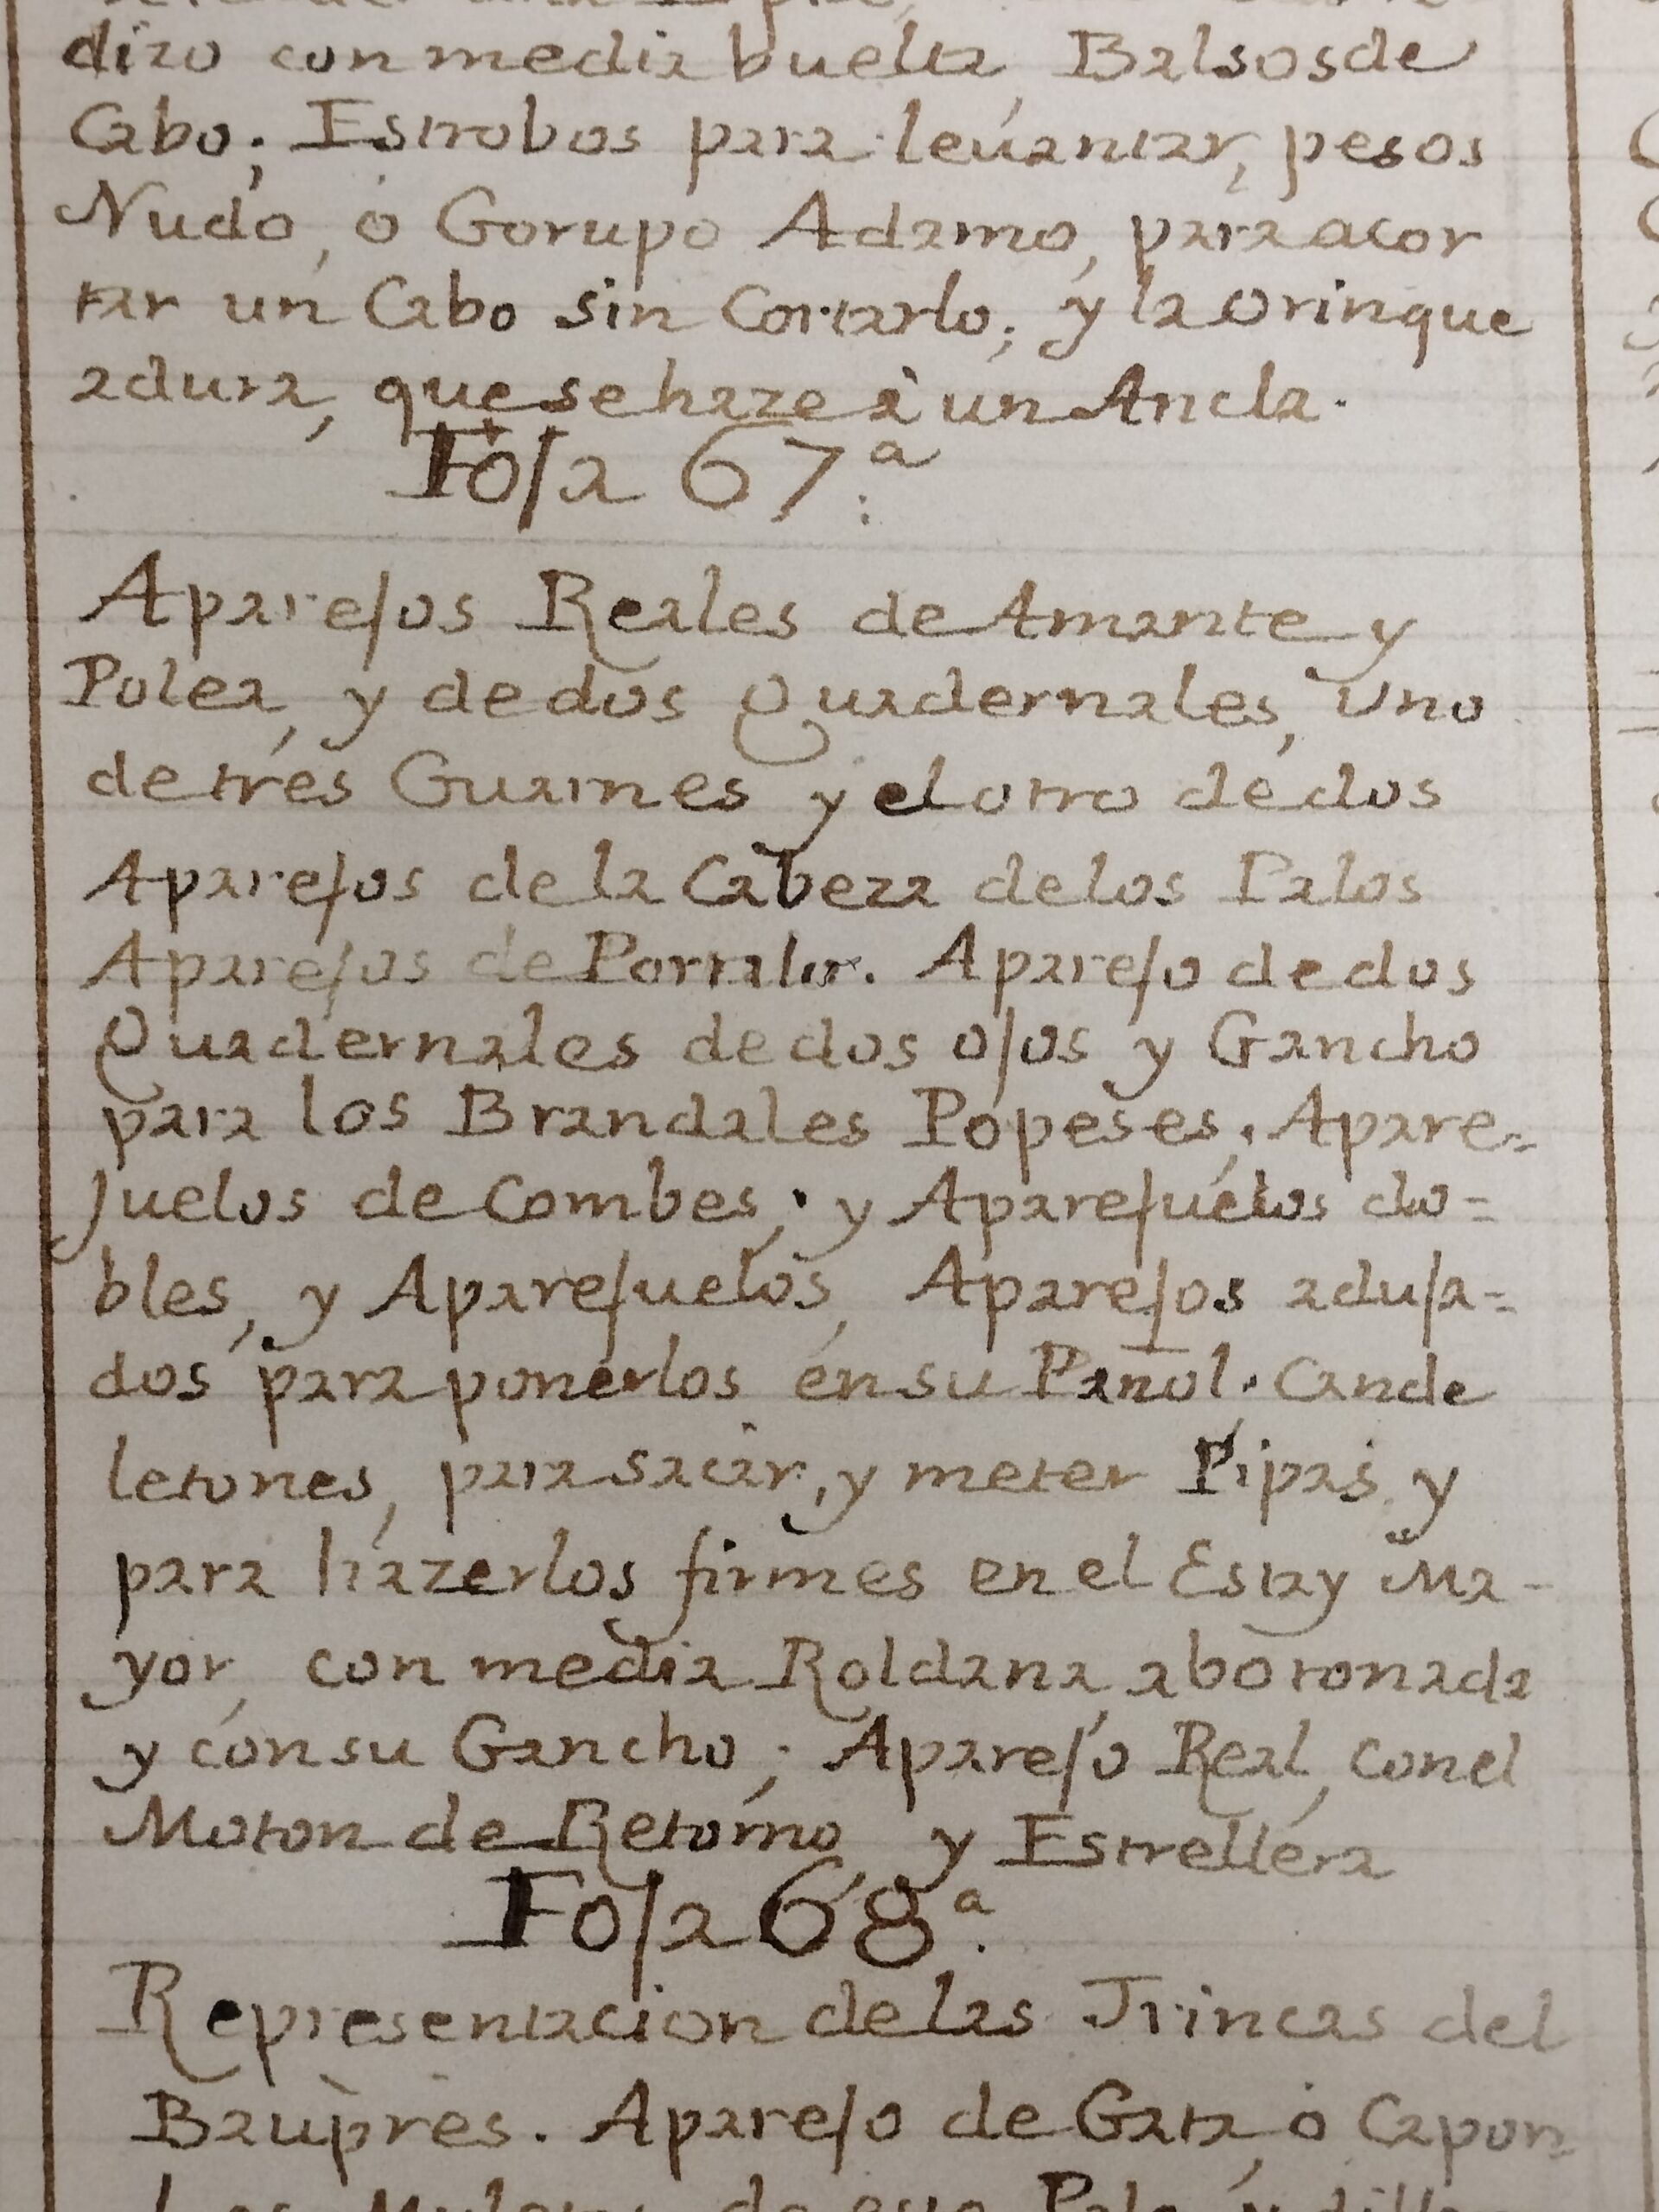 dizo con media buelta, Balsos de
Cabo; Estrobos para levantar, pesos
Nudo, o Gorupo Adamo, para acor
tar un Cabo sin Cortarlo; y la orinque
adura, que se haze à un Ancla.
Foja 67.ª
Aparejos Reales de Amante y
Polea, y de dos Quadernales, Uno
de tres Guarnes y el otro de dos
Aparejos de la Cabeza de los Palos
Aparejos de Portalo. Aparejo de dos
Quadernales de dos ojos y Gancho
para los Brandales Popeses, Apare=
juelos de Combes; y Aparejuelos do=
bles, y Aparejuelos, Aparejos aduja=
dos para ponerlos en su Pañol. Cande
letones, para sacar, y meter Pipas, y
para hazerlos firmes en el Estay Ma-
yor, con media Roldana, abotonada
y con su Gancho; Aparejo Real, con el
Moton de Retorno, y Estrellera
Foja 68.ª
Representacion de las Trincas del
Baupres. Aparejo de Gata, o Capon